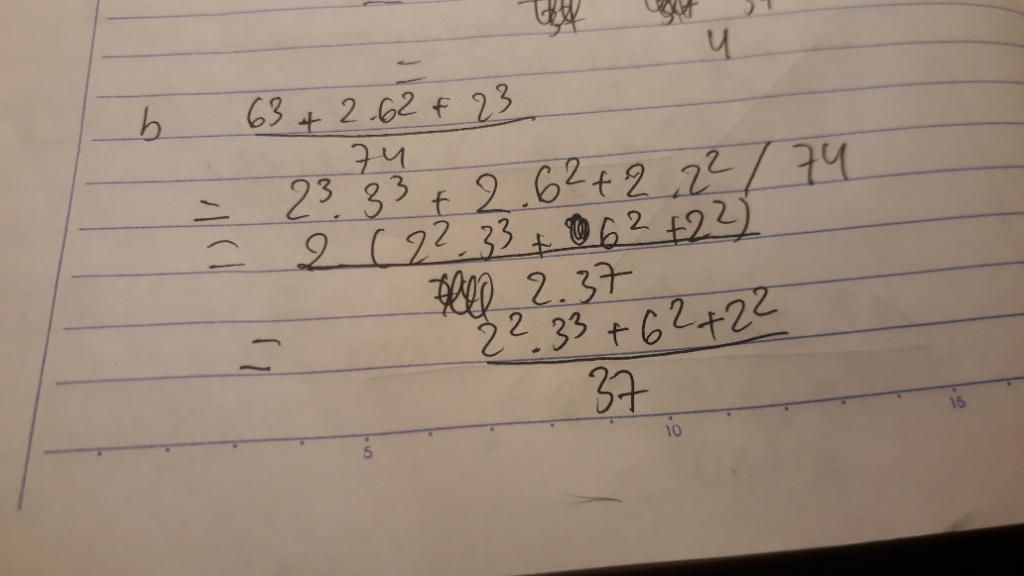 4
=
b 6³ + 2.6² + 2³
74
= 2³.3³ + 2.6² + 2.2² / 74
= 2 (2².3³ + 6² + 2²)
2.37
= 2².3³ + 6² + 2²
37
5 10 15